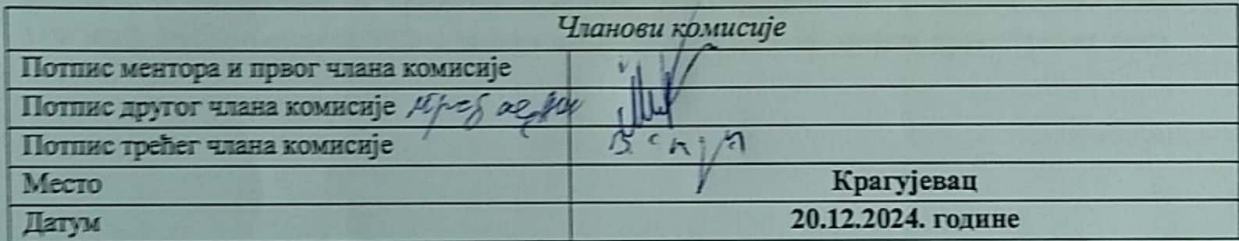 Чланови комисије
Потпис ментора и првог члана комисије
Потпис другог члана комисије
Потпис трећег члана комисије
Место Крагујевац
Датум 20.12.2024. године